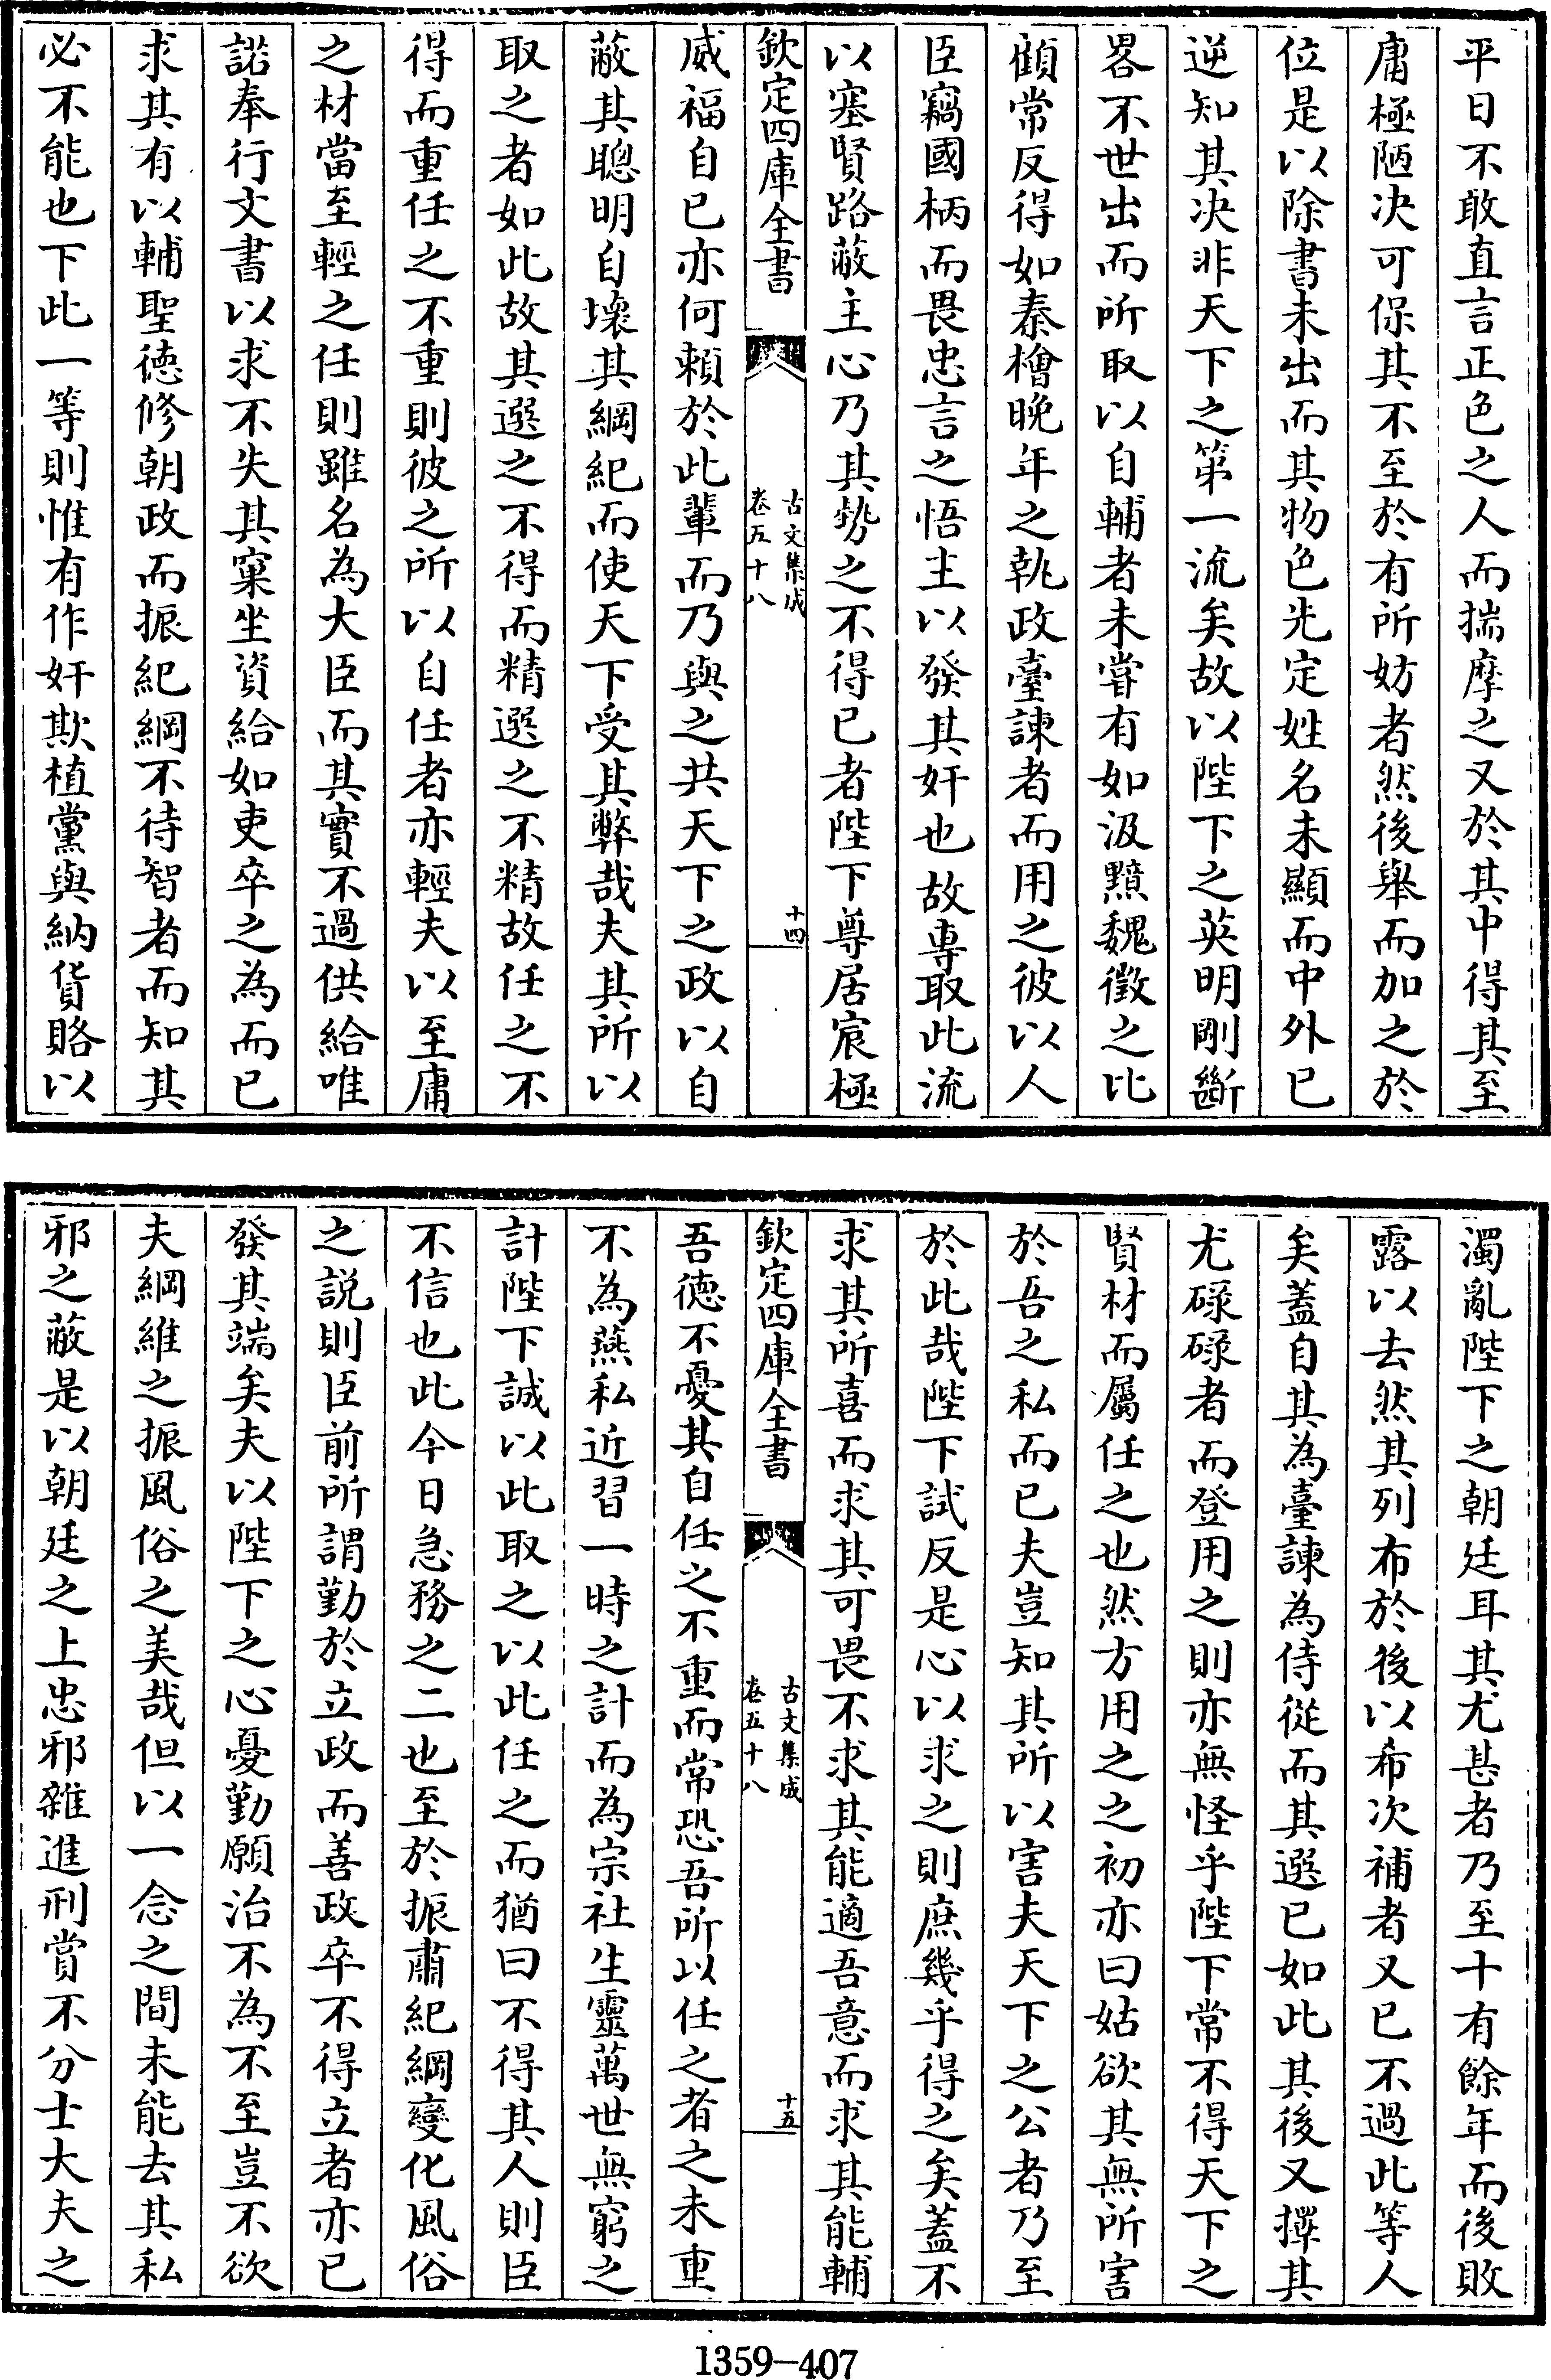 平日不敢直言正色之人而揣摩之又於其中得其至
庸極陋决可保其不至於有所妨者然後舉而加之於
位是以除書未出而其物色先定姓名未顯而中外已
逆知其决非天下之第一流矣故以陛下之英明剛斷
畧不世出而所取以自輔者未嘗有如汲黯魏徵之比
顧常反得如秦檜晚年之執政臺諫者而用之彼以人
臣竊國柄而畏忠言之悟主以發其奸也故專取此流
以塞賢路蔽主心乃其勢之不得已者陛下尊居宸極
欽定四庫全書
古文集成
卷五十八
十四
威福自已亦何賴於此輩而乃與之共天下之政以自
蔽其聰明自壞其綱紀而使天下受其弊哉夫其所以
取之者如此故其選之不得而精選之不精故任之不
得而重任之不重則彼之所以自任者亦輕夫以至庸
之材當至輕之任則雖名為大臣而其實不過供給唯
諾奉行文書以求不失其窠坐資給如吏卒之為而已
求其有以輔聖德修朝政而振紀綱不待智者而知其
必不能也下此一等則惟有作奸欺植黨與納貨賂以
濁亂陛下之朝廷耳其尤甚者乃至十有餘年而後敗
露以去然其列布於後以希次補者又已不過此等人
矣蓋自其為臺諫為侍從而其選已如此其後又擇其
尤碌碌者而登用之則亦無怪乎陛下常不得天下之
賢材而屬任之也然方用之之初亦曰姑欲其無所害
於吾之私而已夫豈知其所以害夫天下之公者乃至
於此哉陛下試反是心以求之則庶幾乎得之矣蓋不
求其所喜而求其可畏不求其能適吾意而求其能輔
欽定四庫全書
古文集成
卷五十八
十五
吾德不憂其自任之不重而常恐吾所以任之者之未重
不為燕私近習一時之計而為宗社生靈萬世無窮之
計陛下誠以此取之以此任之而猶曰不得其人則臣
不信也此今日急務之二也至於振肅紀綱變化風俗
之説則臣前所謂勤於立政而善政卒不得立者亦已
發其端矣夫以陛下之心憂勤願治不為不至豈不欲
夫綱維之振風俗之美哉但以一念之間未能去其私
邪之蔽是以朝廷之上忠邪雜進刑賞不分士大夫之
1359-407